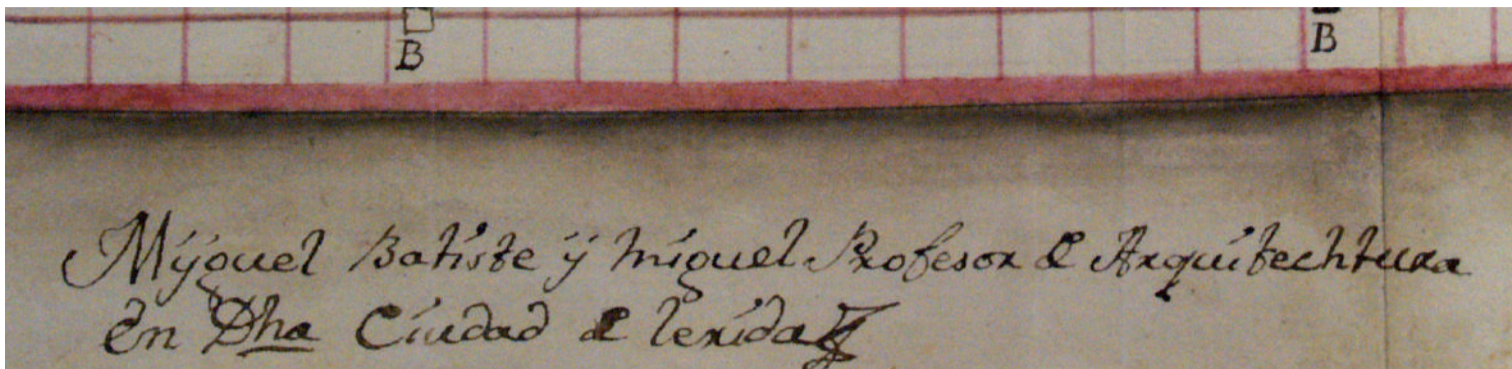 B B
Miguel Batiste ÿ Miguel Profesor de Arquitechtura
en Dha Ciudad de lerida